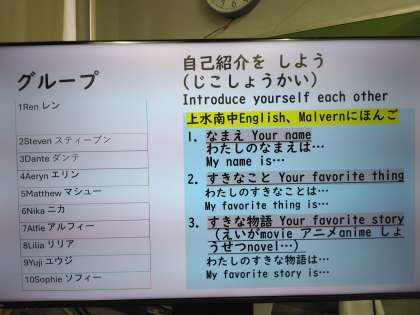 グループ
1Ren レン
2Steven スティーブン
3Dante ダンテ
4Aeryn エリン
5Matthew マシュー
6Nika ニカ
7Alfie アルフィー
8Lilia リリア
9Yuji ユウジ
10Sophie ソフィー
自己紹介を しよう
(じこしょうかい)
Introduce yourself each other
上水南中English、Malvernにほんご
1. なまえ Your name
わたしのなまえは…
My name is…
2. すきなこと Your favorite thing
わたしのすきなことは…
My favorite thing is…
3. すきな物語 Your favorite story
(えいがmovie アニメanime しょ
うせつnovel…)
わたしのすきな物語は…
My favorite story is…